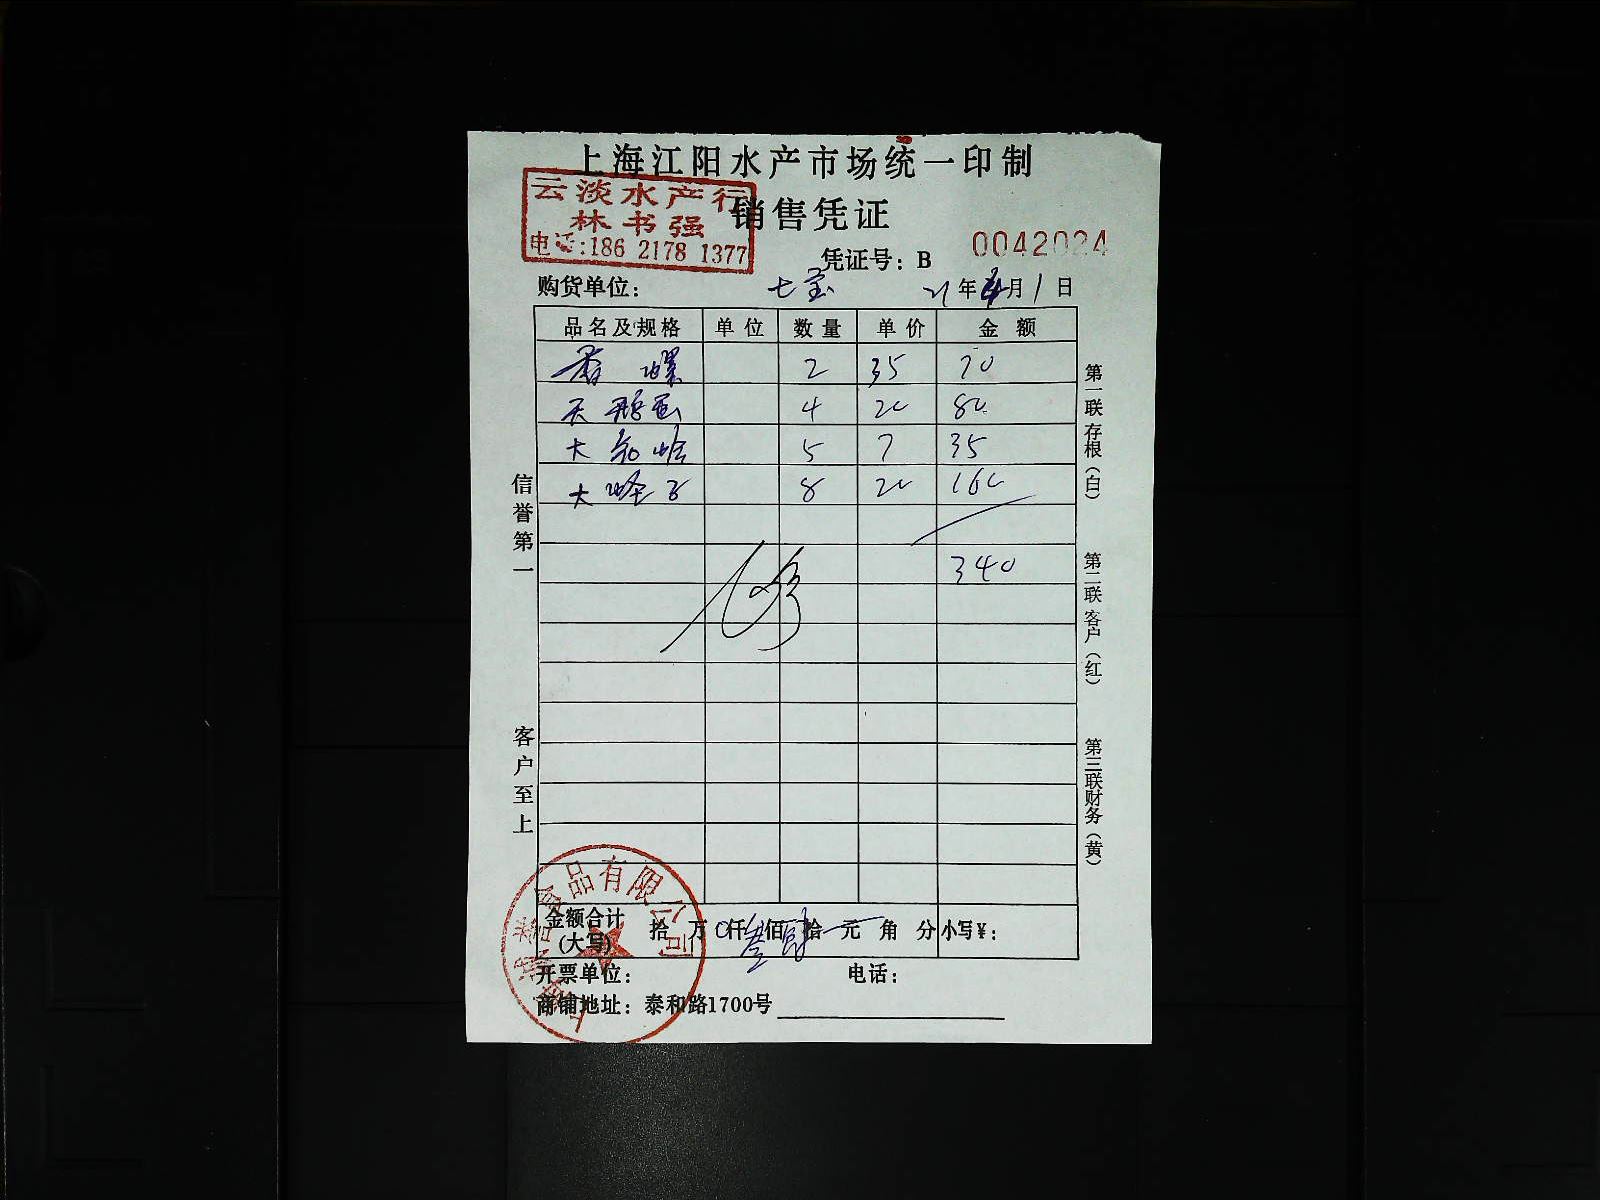 上海江阳水产市场统一印制
云淡水产行
林书强
电话:186 2178 1377
销售凭证
凭证号：B 0042024
购货单位： 七宝 21年4月1日
品名及规格 单位 数量 单价 金额
香螺 2 35 70
天鹅蛋 4 20 80
大 5 7 35
大蛏子 8 20 160
340
信誉第一
客户至上
第一联存根（白）
第二联客户（红）
第三联财务（黄）
食品有限公司
金额合计（大写） 拾 万 仟 佰 拾 元 角 分 小写¥：
开票单位： 电话：
商铺地址：泰和路1700号